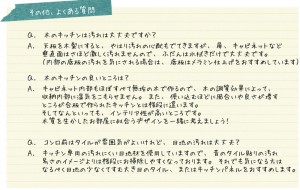 その他、よくある質問
Q. 木のキッチンは汚れは大丈夫ですか？
A. 天板を木製にすると、やはり汚れの心配もでてきますが、扉、キャビネットなど
垂直面はさほど激しく汚れませんので、ふだんは水拭きだけで大丈夫です。
（内部の底板の汚れを気にされる場合は、底板はメラミン仕上げをおすすめしています）
Q. 木のキッチンの良いところは？
A. キャビネット内部もほぼすべて無垢の木で作るので、木の調湿効果によって、
収納内部に湿気をこもらせません。また、使い込むほどに風合いや良さが増す
ところが合板で作られたキッチンとは格段に違います。
そしてなんといっても、インテリア性が高いところです。
木質を生かしたお部屋に似合うデザインを一緒に考えましょう！
Q. コンロ前はタイルが雰囲気がよいけれど、目地の汚れは大丈夫？
A. キッチン専用の汚れにくい目地材を使用していますので、昔のタイル貼りの汚れ
易さのイメージよりは格段にお掃除しやすくなっております。それでも気になる方は
なるべく目地の少なくてすむ大き目のタイル、またはキッチンパネルをおすすめします。